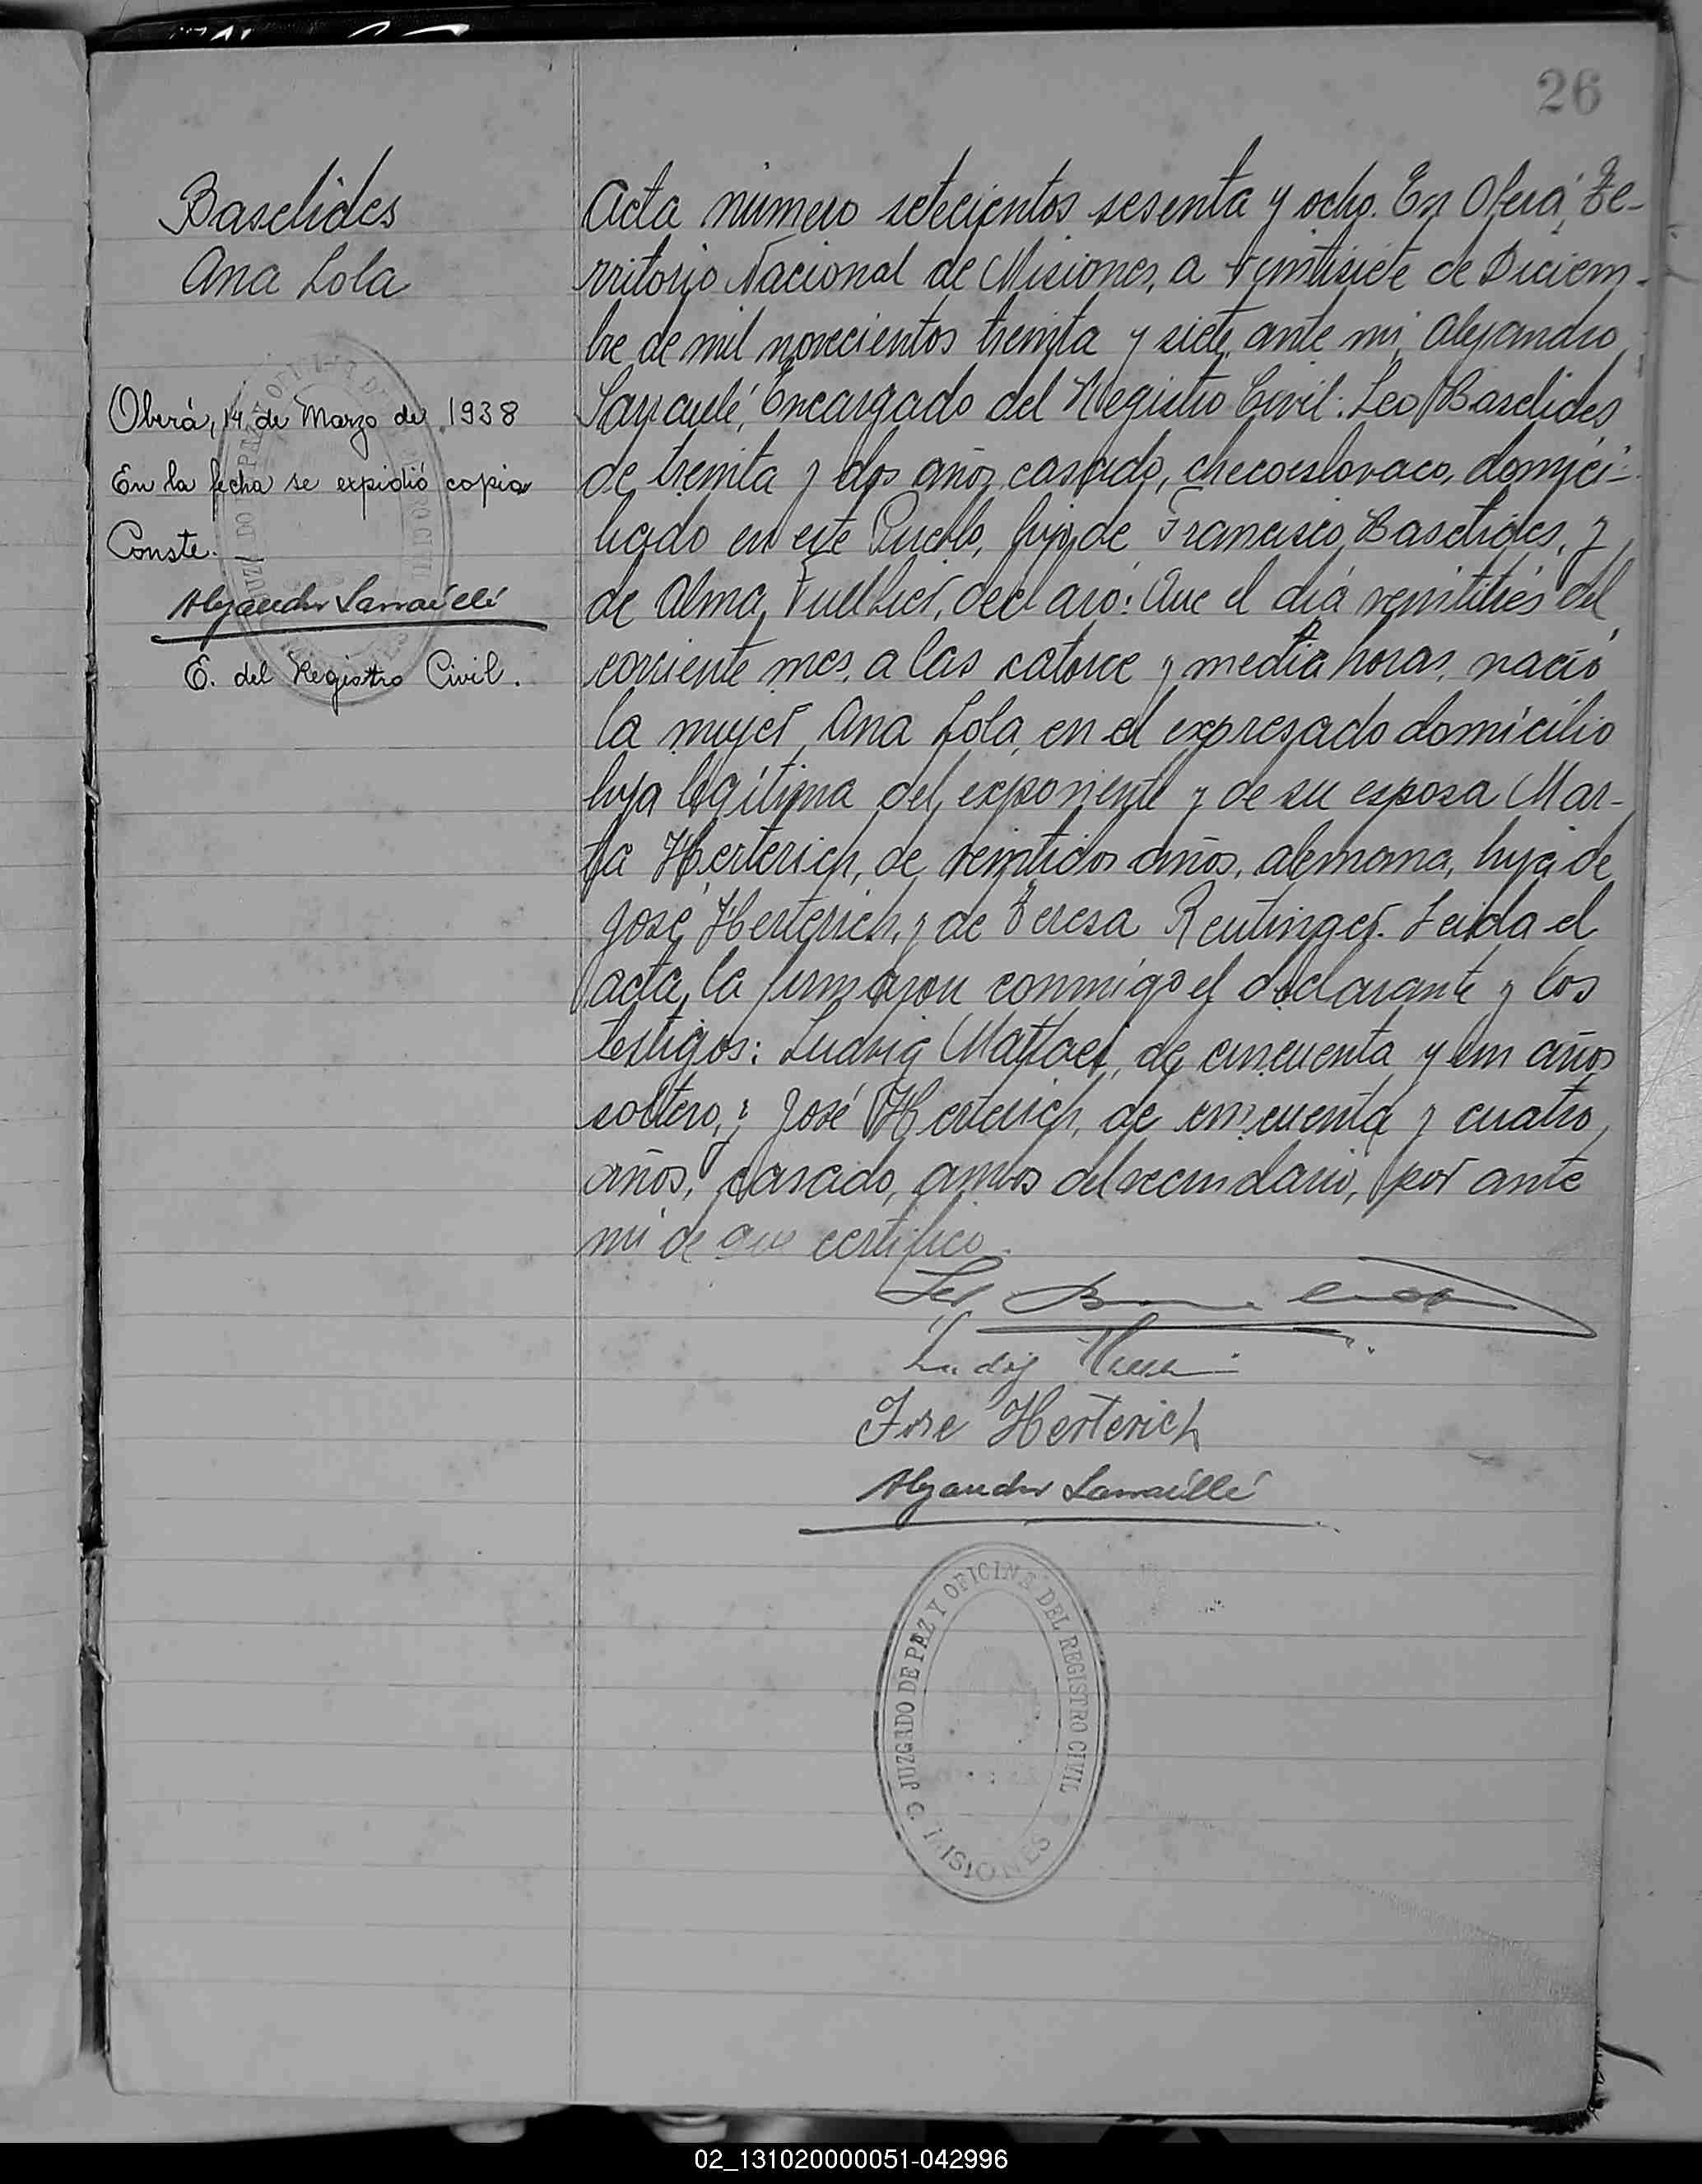 26
Baselides
Ana Lola
Oberá, 14 de Marzo de 1938
En la fecha se expidió copia
Conste. —
Alejandro Sarraúllé
E. del Registro Civil.
Acta número setecientos sesenta y ocho. En Oberá, Te-
rritorio Nacional de Misiones, a veintisiete de Diciem-
bre de mil novecientos treinta y siete, ante mi, Alejandro
Encargado del Registro Civil: Leo Baselides,
de treinta y dos años, casado, checoeslovaco, domici-
liado en este Pueblo, hijo de Francisco Baselides, y
de Alma declaró: Que el día veintitrés del
corriente mes, a las catorce y media horas, nació
la mujer Ana Lola, en el expresado domicilio
hija legítima del exponente y de su esposa Mar-
ta Herterich, de veintidos años, alemana, hija de
José Herterich, y de Teresa Reutinger. Leida el
acta, la firmaron conmigo el declarante y los
testigos: Ludvig de cincuenta y un años
soltero, y José Herterich, de cincuenta y cuatro
años, casado, ambos del vecindario, por ante
mi de que certifico.
Leo
Jose Herterich
Alejandro Sarraúllé
JUZGADO DE PAZ Y OFICINA DEL REGISTRO CIVIL
MISIONES
02_131020000051-042996